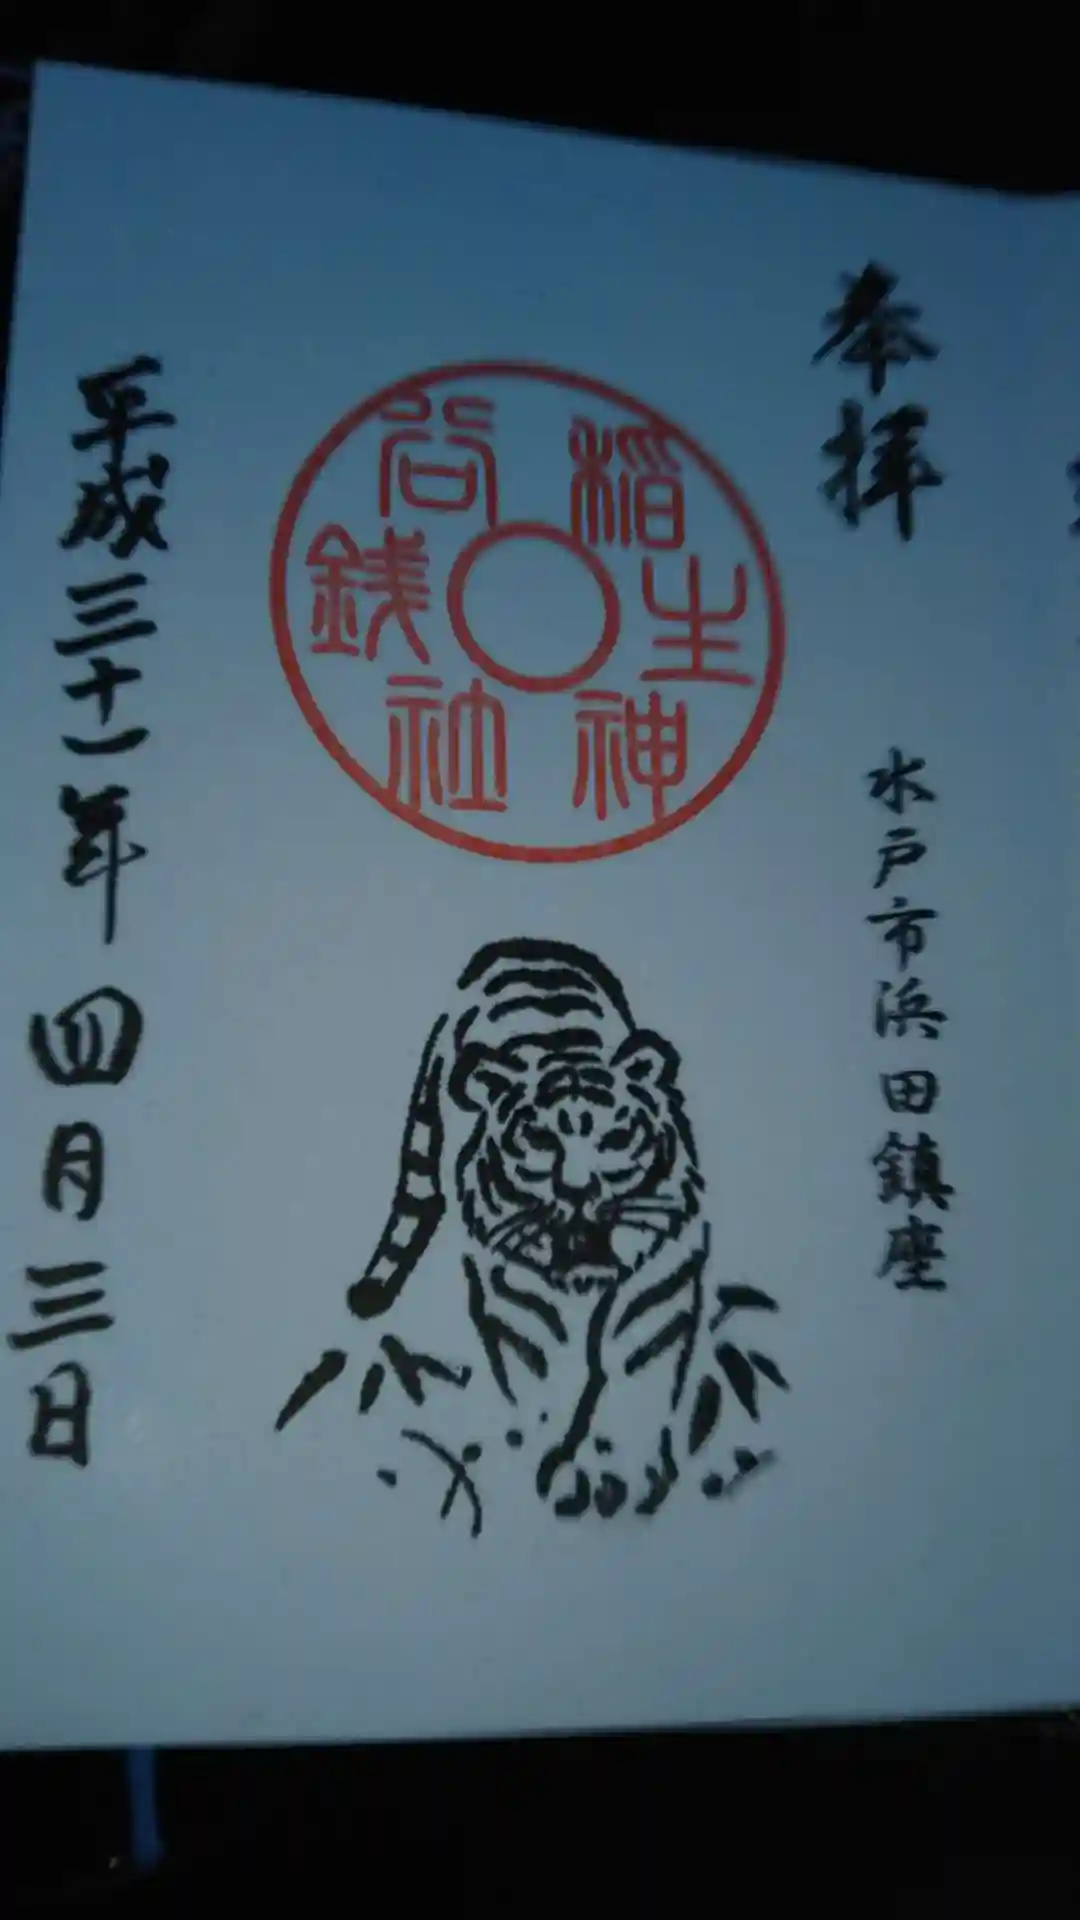 奉拝
水戸市浜田鎮座
銭谷稲生神社
平成三十一年四月三日